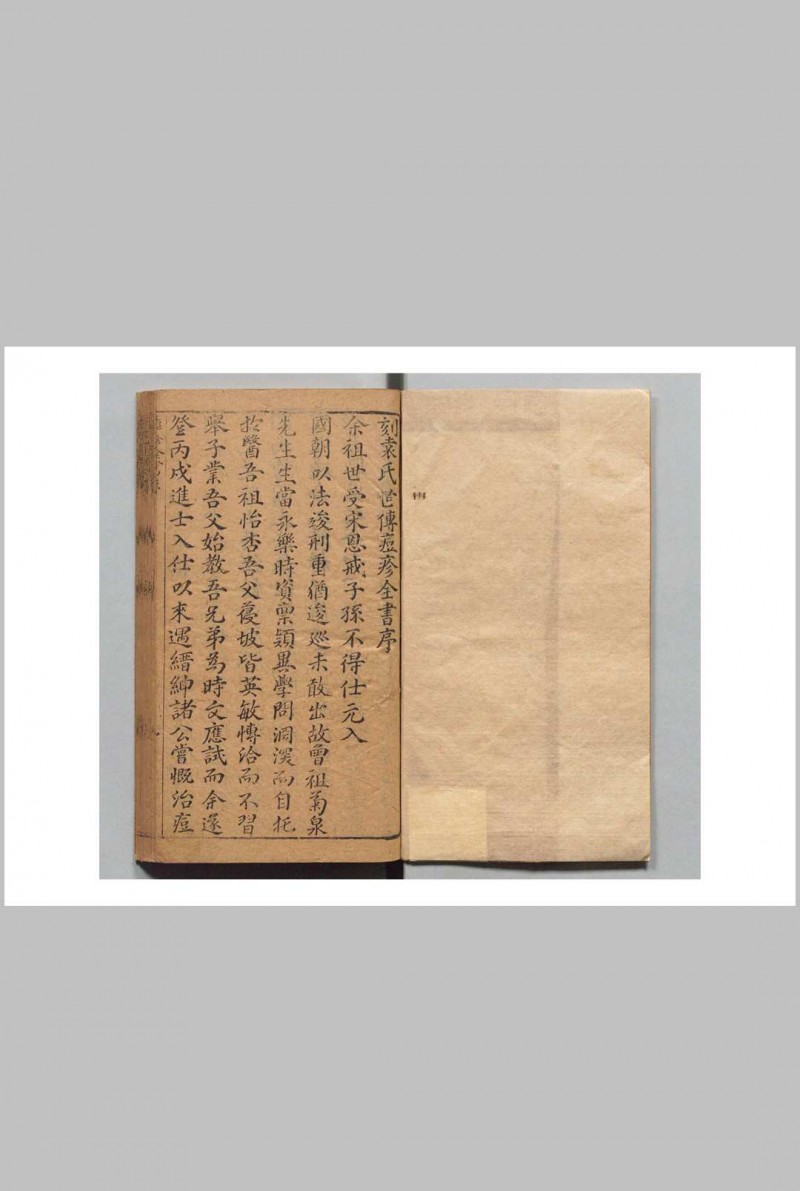 刻袁氏世傳痘疹全書序
余祖世受宋恩戒子孫不得仕元入
國朝以法逡刑重猶逡巡未敢出故曾祖菊泉
先生生當永樂時資稟頴異學問淵深而自托
扵醫吾祖怡杏吾父𠮓坡皆英敏愽洽而不習
舉子業吾父始教吾兄弟為時文應試而余遂
登丙戍進士入仕以來遇縉紳諸公嘗慨治痘